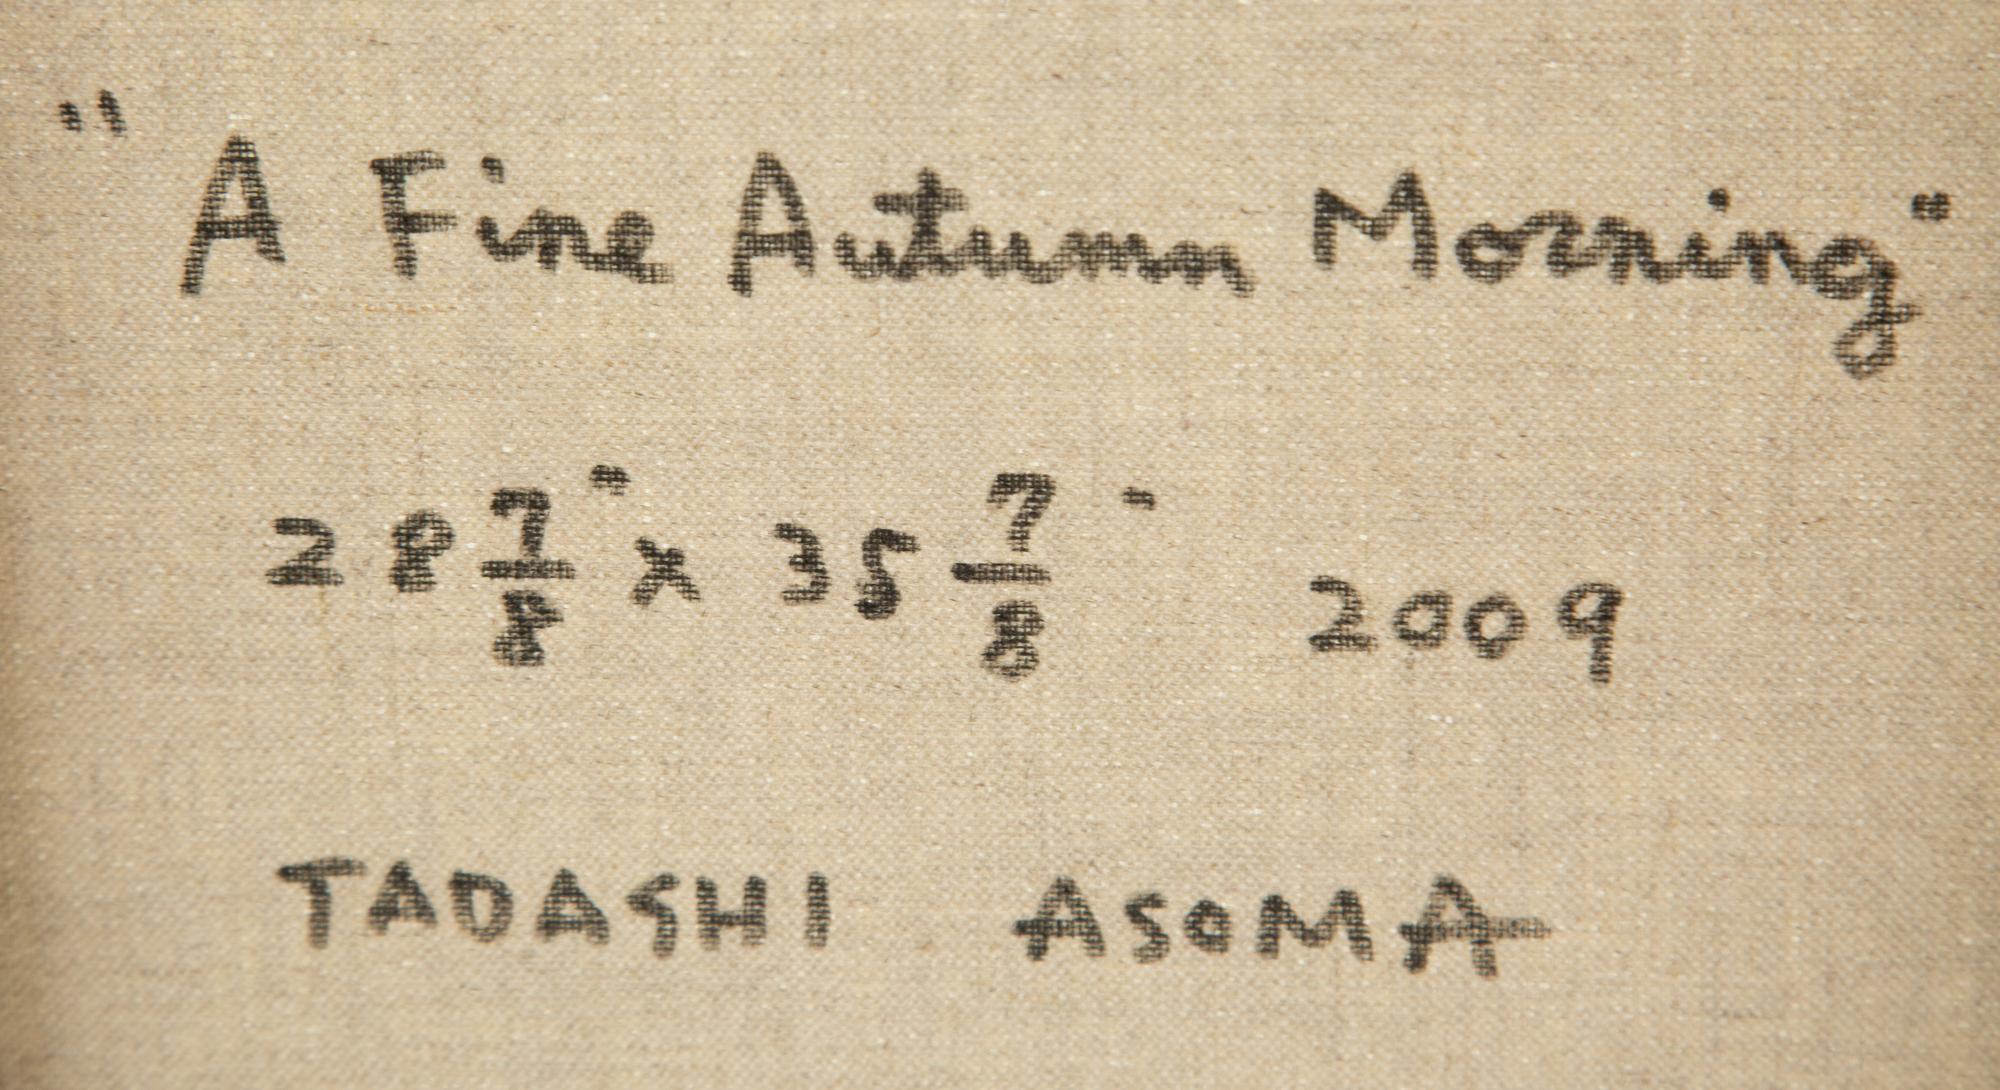 "A Fine Autumn Morning"
28 7/8" x 35 7/8" 2009
TADASHI ASOMA